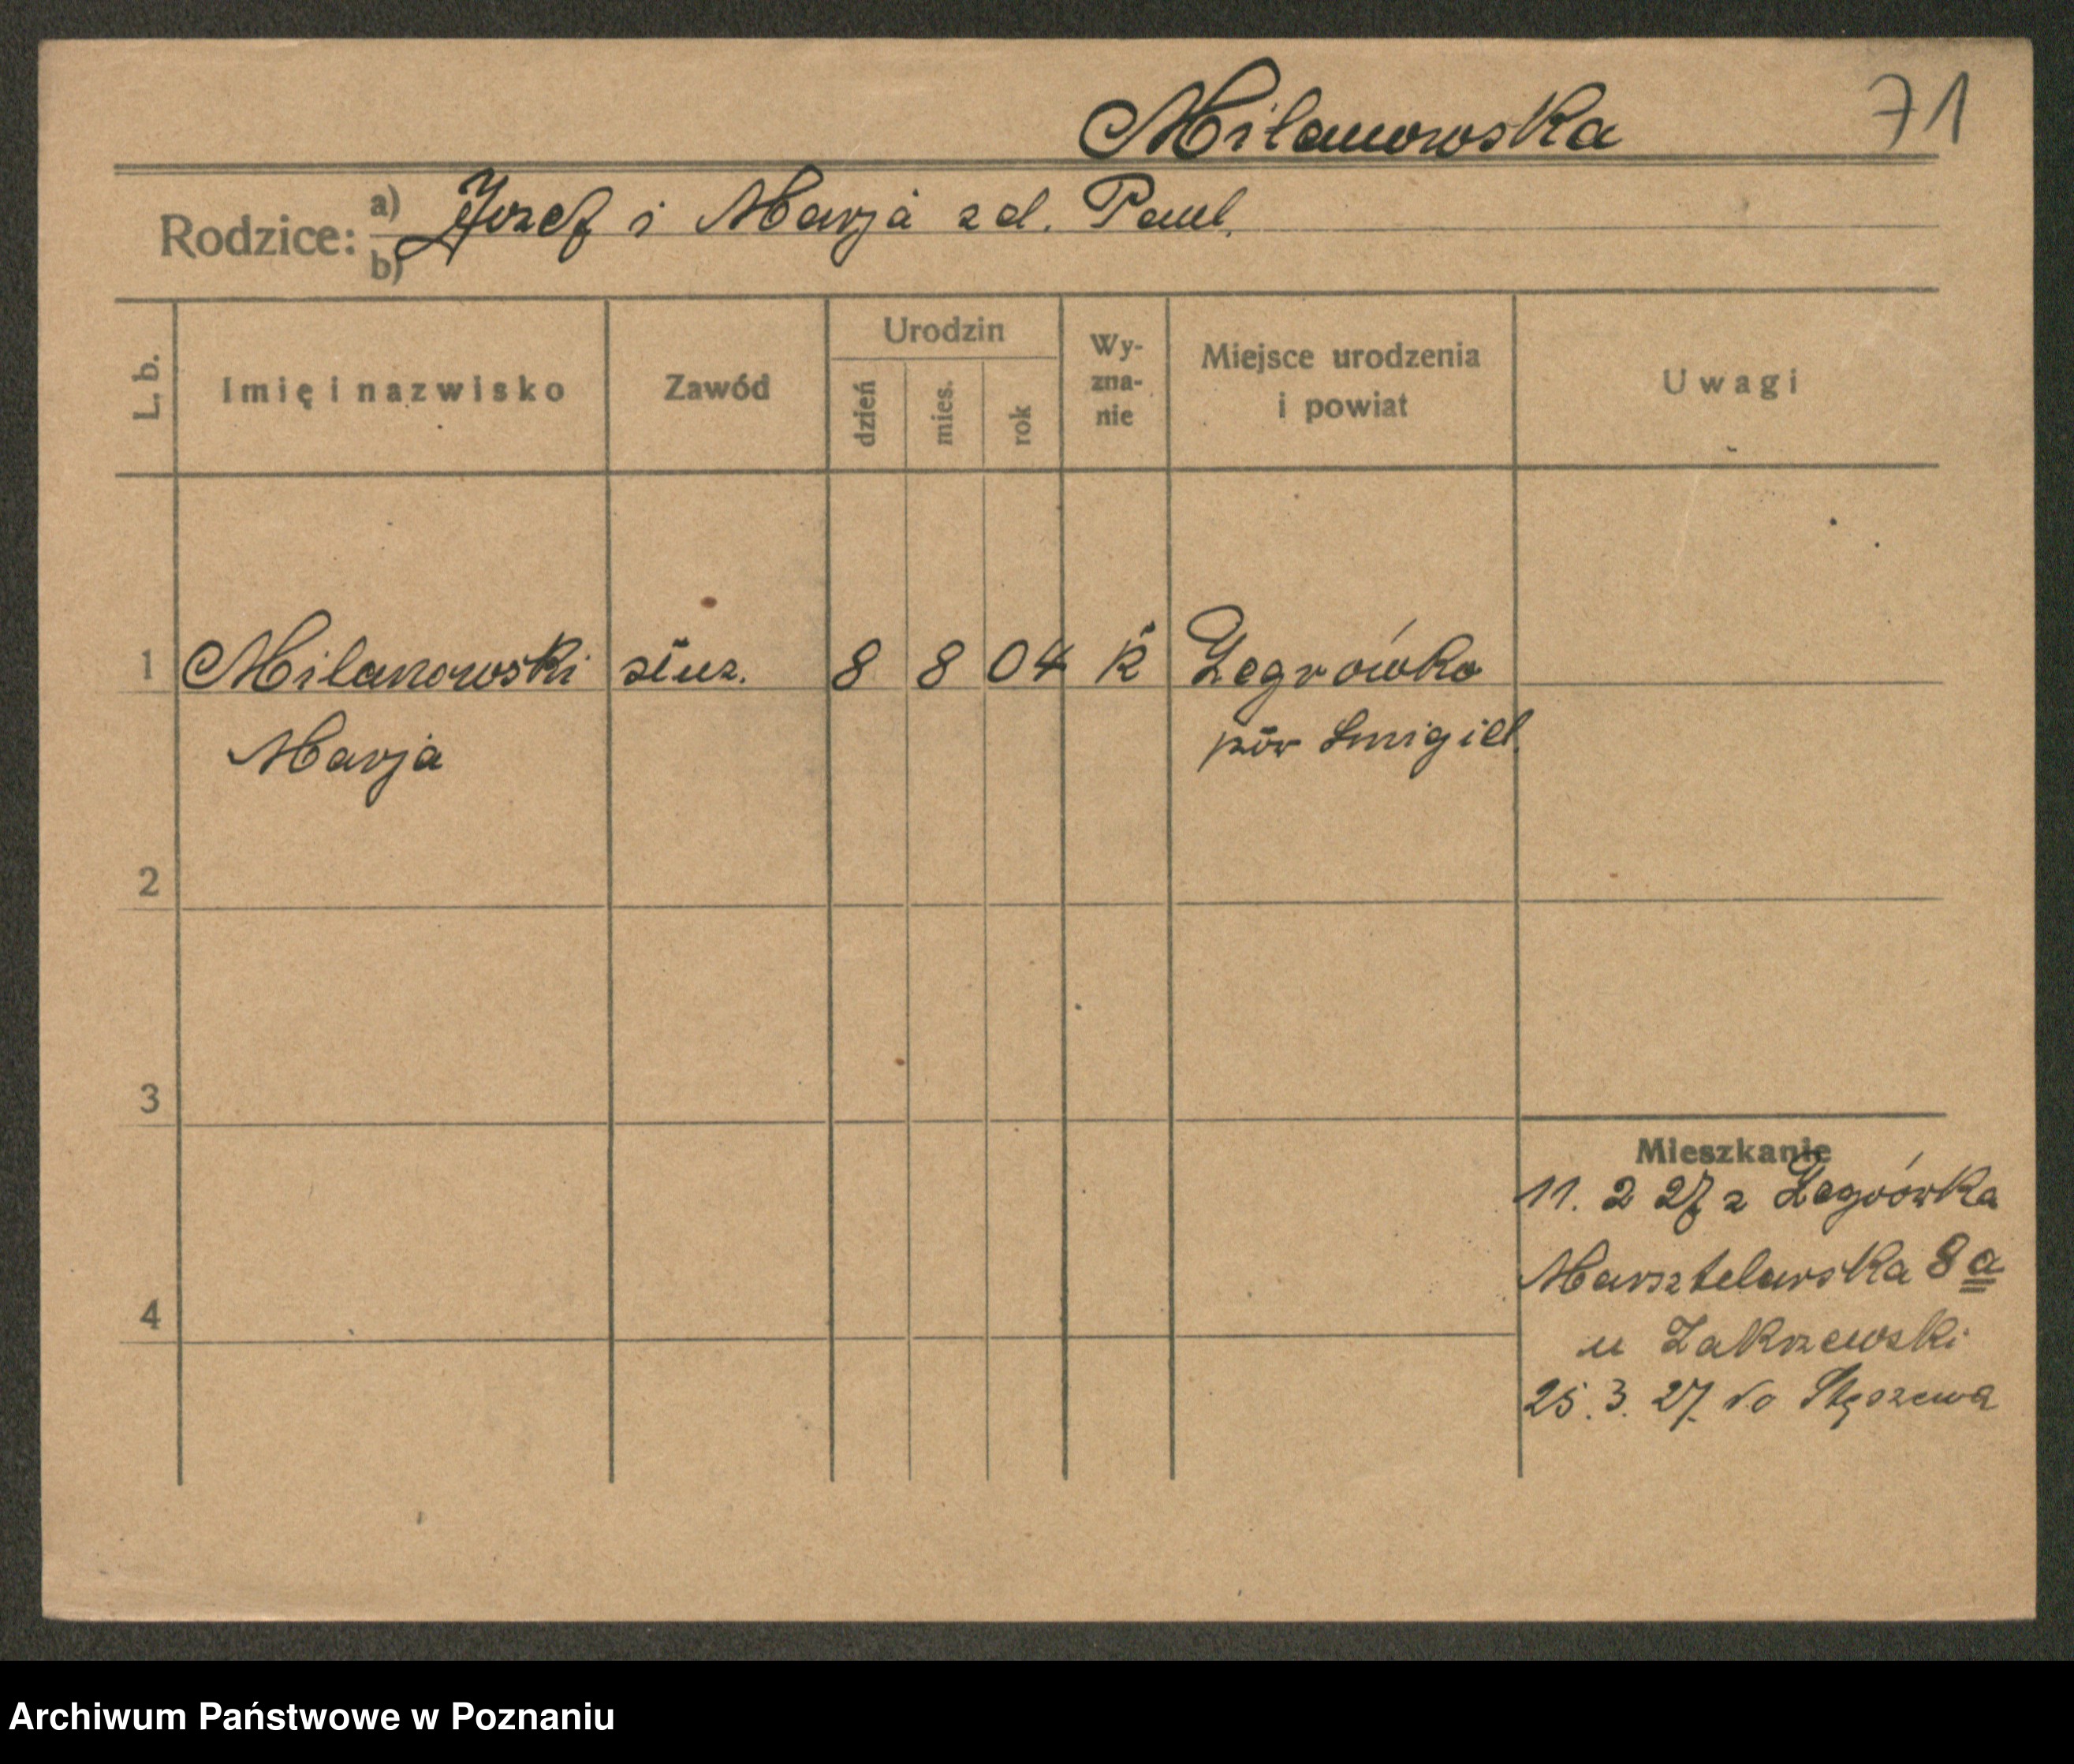 Milanowska 71
Rodzice: a) Jozef i Marja zd. Paul.
b)
L. b. Imię i nazwisko Zawód Urodzin dzień mies. rok Wy-zna-nie Miejsce urodzenia i powiat Uwagi
1 Milanowski służ. 8 8 04 k Żegrówko
Marja pow Smigiel.
2
3
Mieszkanie
11. 2 27 z Żegrówka
Masztelarska 8 a
4
u Zakrzewski
25. 3. 27. do Stęszewa
Archiwum Państwowe w Poznaniu